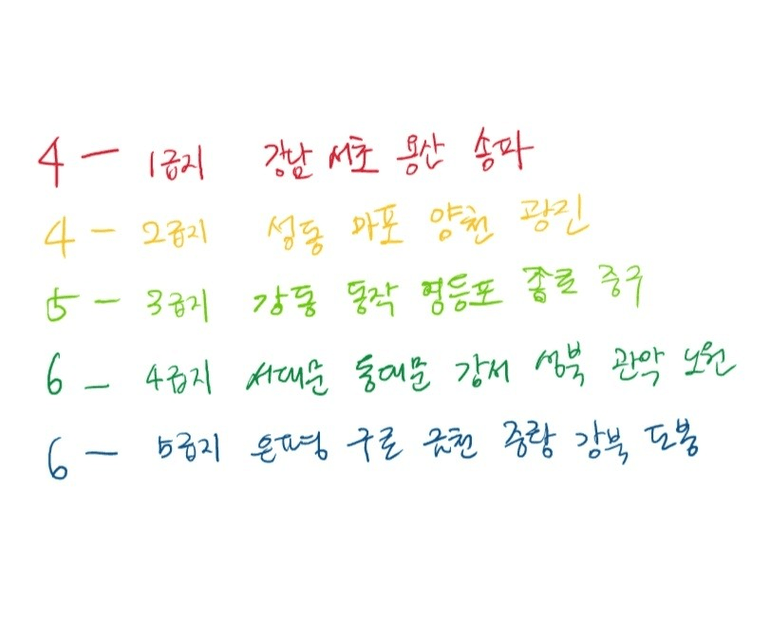 4 - 1급지 강남 서초 용산 송파
4 - 2급지 성동 마포 양천 광진
5 - 3급지 강동 동작 영등포 종로 중구
6 - 4급지 서대문 동대문 강서 성북 관악 노원
6 - 5급지 은평 구로 금천 중랑 강북 도봉